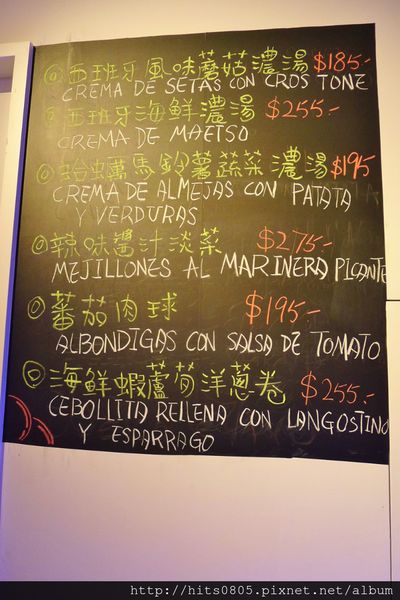 西班牙風味蘑菇濃湯 $185.-
CREMA DE SETAS CON CROS TONE
西班牙海鮮濃湯 $255.-
CREMA DE MAETSO
蛤蠣馬鈴薯蔬菜濃湯 $195
CREMA DE ALMEJAS CON PATATA
Y VERDURAS
辣味醬汁淡菜 $275.-
MEJILLONES AL MARINERA PICANTE
蕃茄肉球 $195.-
ALBONDIGAS CON SALSA DE TOMATO
海鮮蝦蘆筍洋蔥卷 $255.-
CEBOLLITA RELLENA CON LANGOSTINO
Y ESPARRAGO
http://hits0805.pixnet.net/album